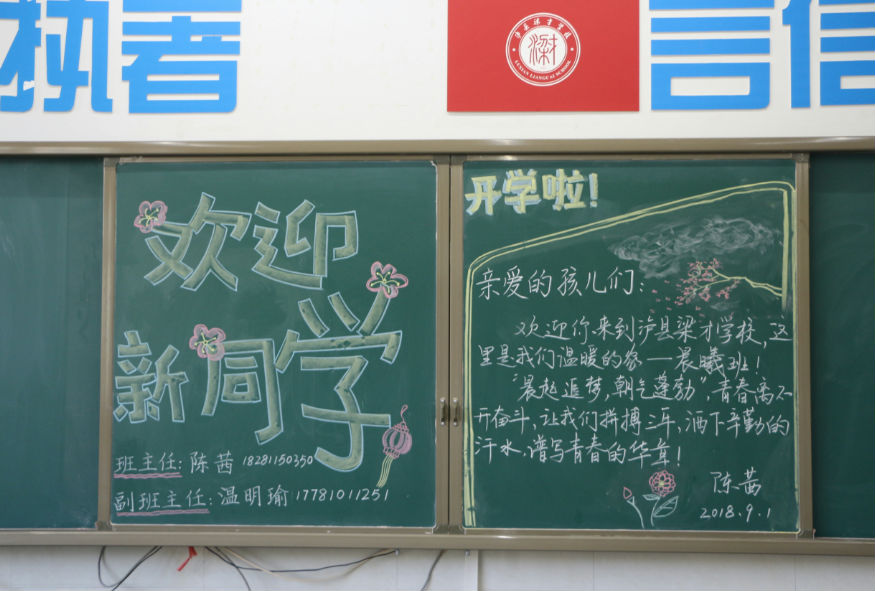 执者
梁才
LUXIAN LIANGCAI SCHOOL
言信
欢迎
新同学
班主任:陈茜 18281150350
副班主任:温明瑜 17781011251
开学啦!
亲爱的孩儿们:
欢迎你来到泸县梁才学校,这
里是我们温暖的家——晨曦班!
"晨起追梦,朝气蓬勃",青春离不
开奋斗,让我们拼搏三年,洒下辛勤的
汗水,谱写青春的华章!
陈茜
2018.9.1